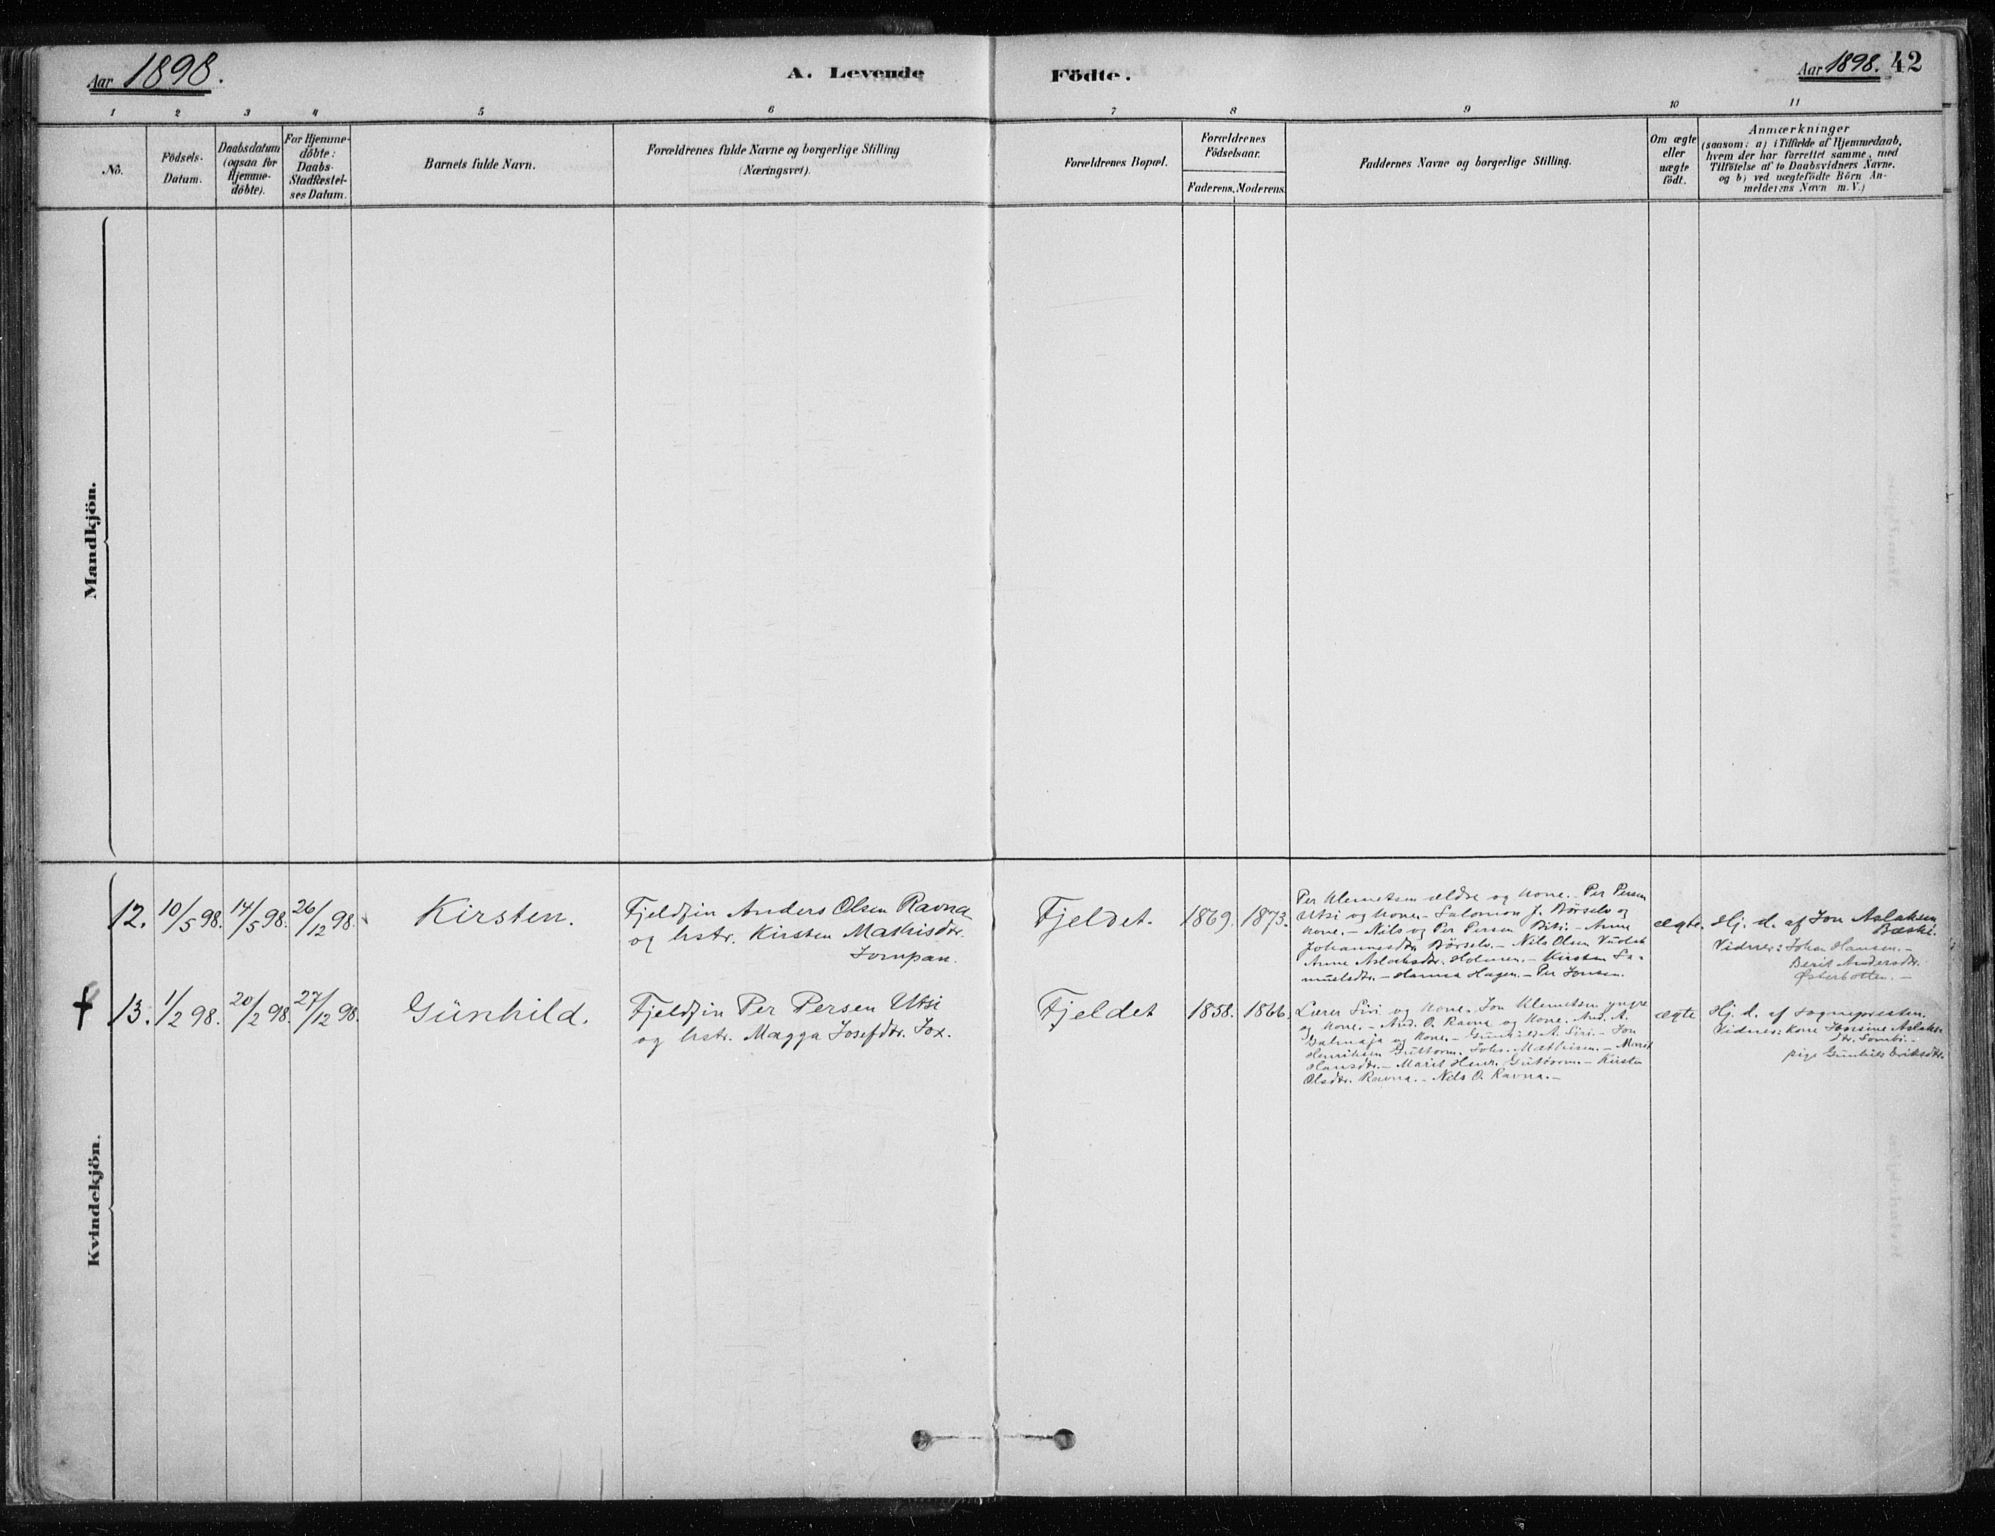 Aar 1898.
A. Levende Födte.
Aar 1898. 42
1 2 3 4 5 6 7 8 9 10 11
No.
Födsels-
Datum.
Daabsdatum
(ogsaa for
Hjemme-
döbte).
For Hjemme-
döbte:
Daabs-
Stadfæstel-
ses Datum.
Barnets fulde Navn.
Forældrenes fulde Navne og borgerlige Stilling
(Næringsvei).
Forældrenes Bopæl.
Forældrenes
Födselsaar.
Faderens. Moderens.
Faddernes Navne og borgerlige Stilling.
Om ægte
eller
uægte
födt.
Anmærkninger
(saasom: a) i Tilfælde af Hjemmedaab,
hvem der har forrettet samme, med
Tilföielse af to Daabsvidners Navne,
og b) ved uægtefödte Börn An-
melderens Navn m. V.)
Mandkjön.
Kvindekjön.
12. 10/5 98. 14/5 98. 26/12 98.
Kirsten.
Fjeldfin Anders Olsen Ravna
og hstr. Kirsten Mathisdtr.
Fjeldet.
1869. 1873.
Per Klemetsen ældre og Kone. Per Persen
Utsi og Kone. Salomon J. Børselv og
Kone. – Nils og Per Persen Biti. – Anne
Johannesdtr. Børselv. – Nils Olsen
Anne Aslaksdtr. Holmen. – Kirsten Sa-
muelsdtr. – Hanna Hagen. – Per Jonsen.
ægte.
Hj. d. af Jon Aslaksen
Bæski.
Vidner: Johan Hansen. –
Berit Andersdtr.
Østerbotten. –
† 13. 1/2 98. 20/2 98. 27/12 98.
Günhild.
Fjeldfin Per Persen Utsi
og hstr. Magga Josefsdtr. Jox.
Fjeldet
1858. 1866.
Lærer Siri og Kone. Jon Klemetsen yngre
og Kone. – And. O. Ravna og Kone. And. A.
Galmaja og Kone. – Gunhild A. Siri. – Jon
Henriksen Guttorm. Johs. Mathisen. – Marit
Hansdtr. – Marit Henr. Guttorm. – Kirsten
Olsdtr. Ravna. – Nils O. Ravna. –
ægte
Hj. d. af Sognepresten.
Vidner: Kone Jonsine Aslaks-
dtr. Sombi. –
pige Gunhild Eriksdtr.